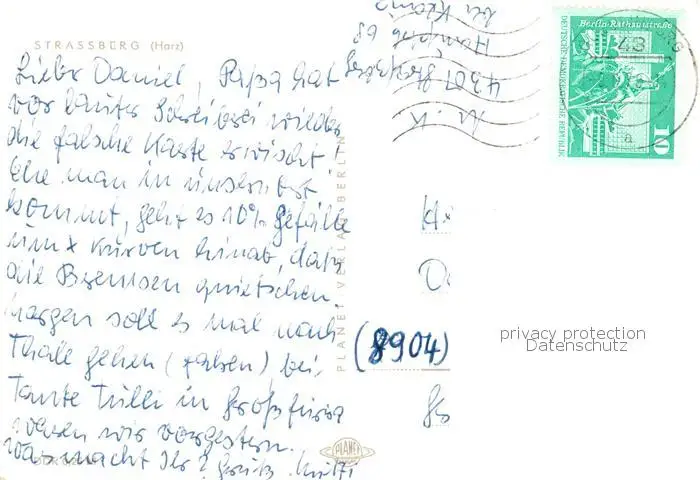 STRASSBERG (Harz)
Lieber Daniel, Papa hat
vor lauter Schreiberei wieder
die falsche Karte erwischt!
Ehe man in unseren Ort
kommt, geht es 10% Gefälle
und x Kurven hinab, daß
die Bremsen quietschen.
Morgen soll es mal nach
Thale gehen (fahren) bei
Tante Trilli in Großfurra
waren wir vorgestern.
Was macht Ihr? Gruß Mutti
PLANET VERLAG BERLIN
PLANET
4301
bei
(8904)
Berlin-Rathausstraße
DEUTSCHE DEMOKRATISCHE REPUBLIK
10
43
a
privacy protection
Datenschutz